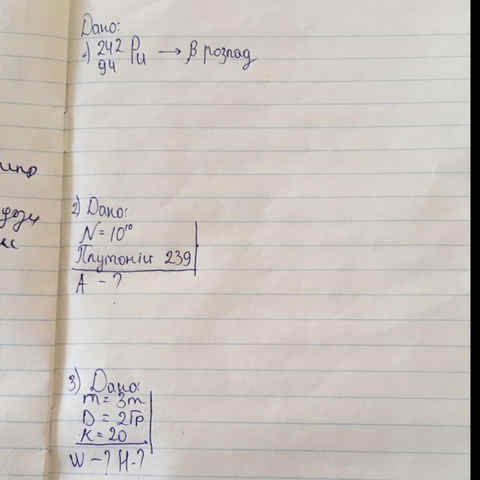 Дано:
1) 242
94 Pu → β розпад
2) Дано:
N = 10¹⁰
Плутоній 239
A - ?
3) Дано:
m = 3т
D = 2Гр
K = 20
W - ? H - ?